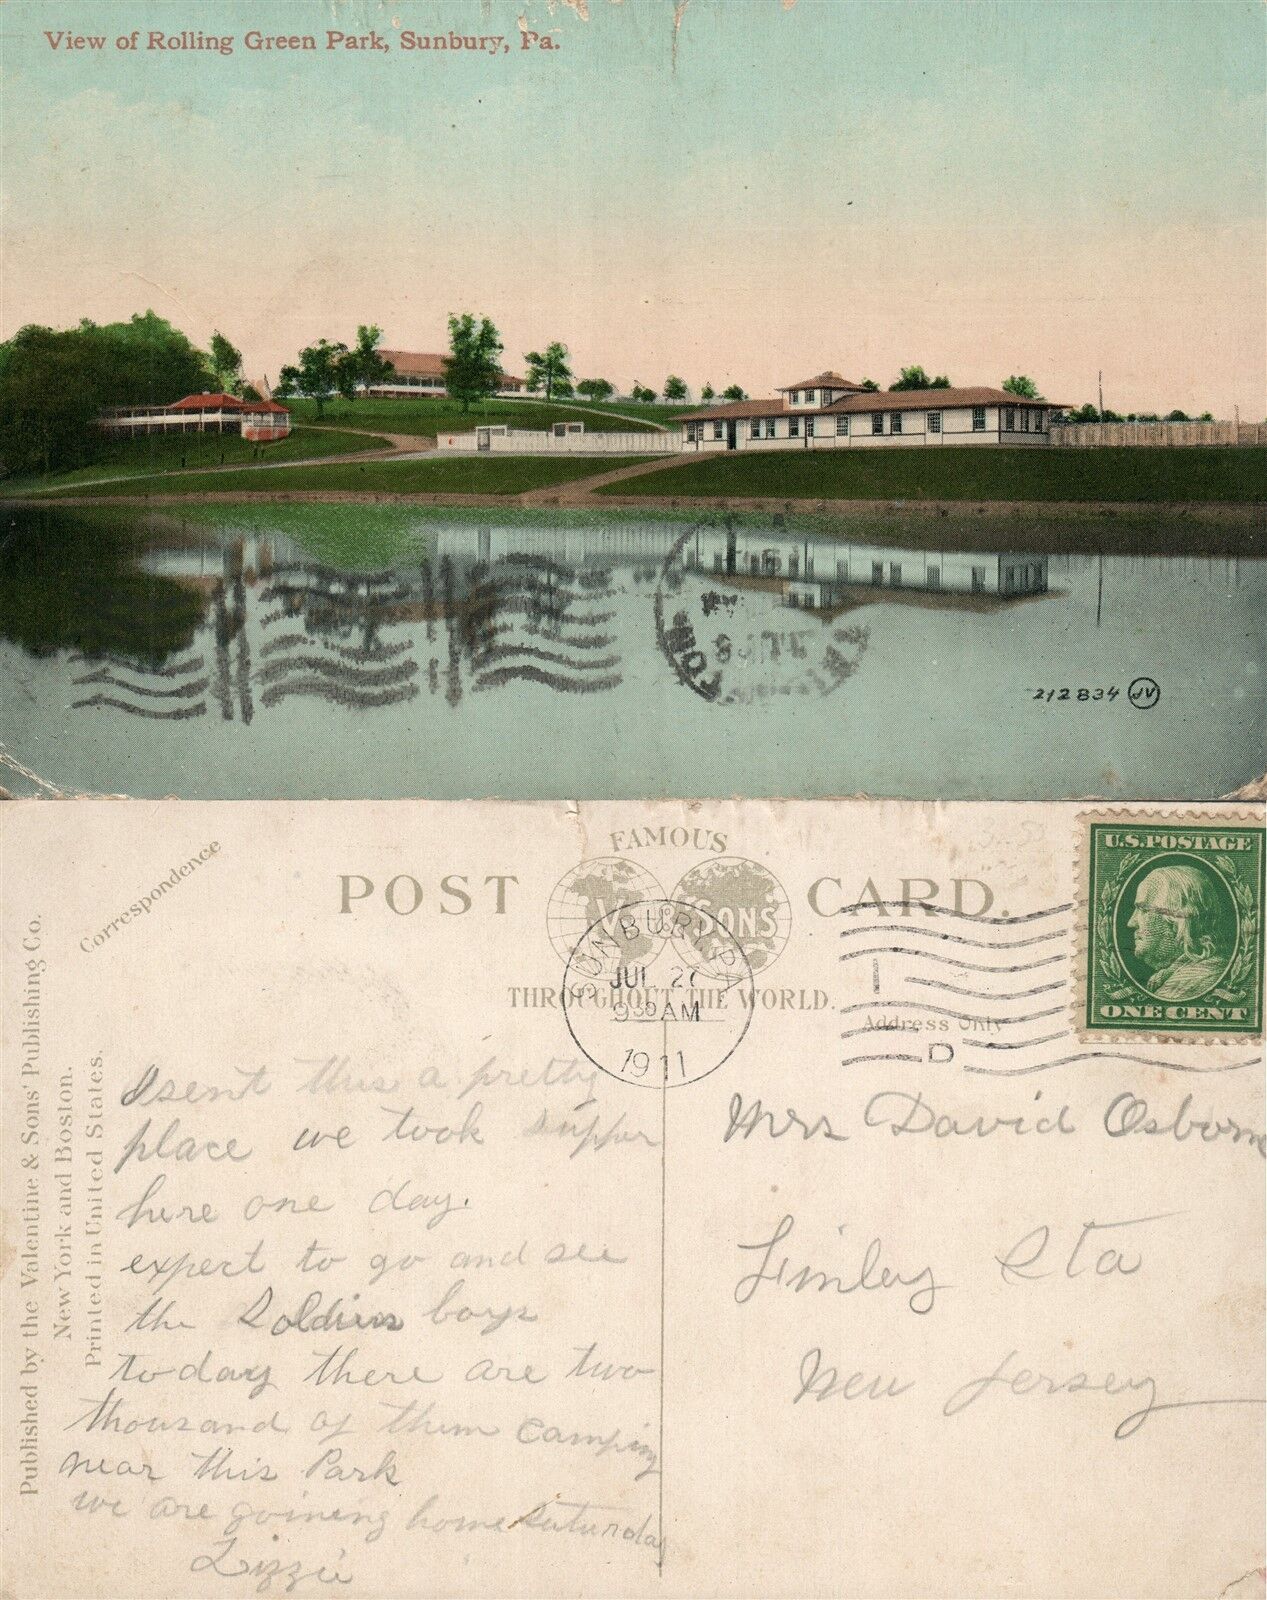 View of Rolling Green Park, Sunbury, Pa.
212834 JV
Correspondence
POST CARD.
FAMOUS
V & SONS
THROUGHOUT THE WORLD.
Address Only
Published by the Valentine & Sons' Publishing Co.
New York and Boston.
Printed in United States.
SUNBURY, PA
JUL 27
9 30 AM
1911
1
D
U.S. POSTAGE
ONE CENT
Isent this a pretty
place we took supper
here one day.
expect to go and see
the Soldiers boys
today there are two
thousand of them camping
near this Park
we are goining home Saturday
Lizzie
Mrs David Osborne
Finley Sta
New Jersey